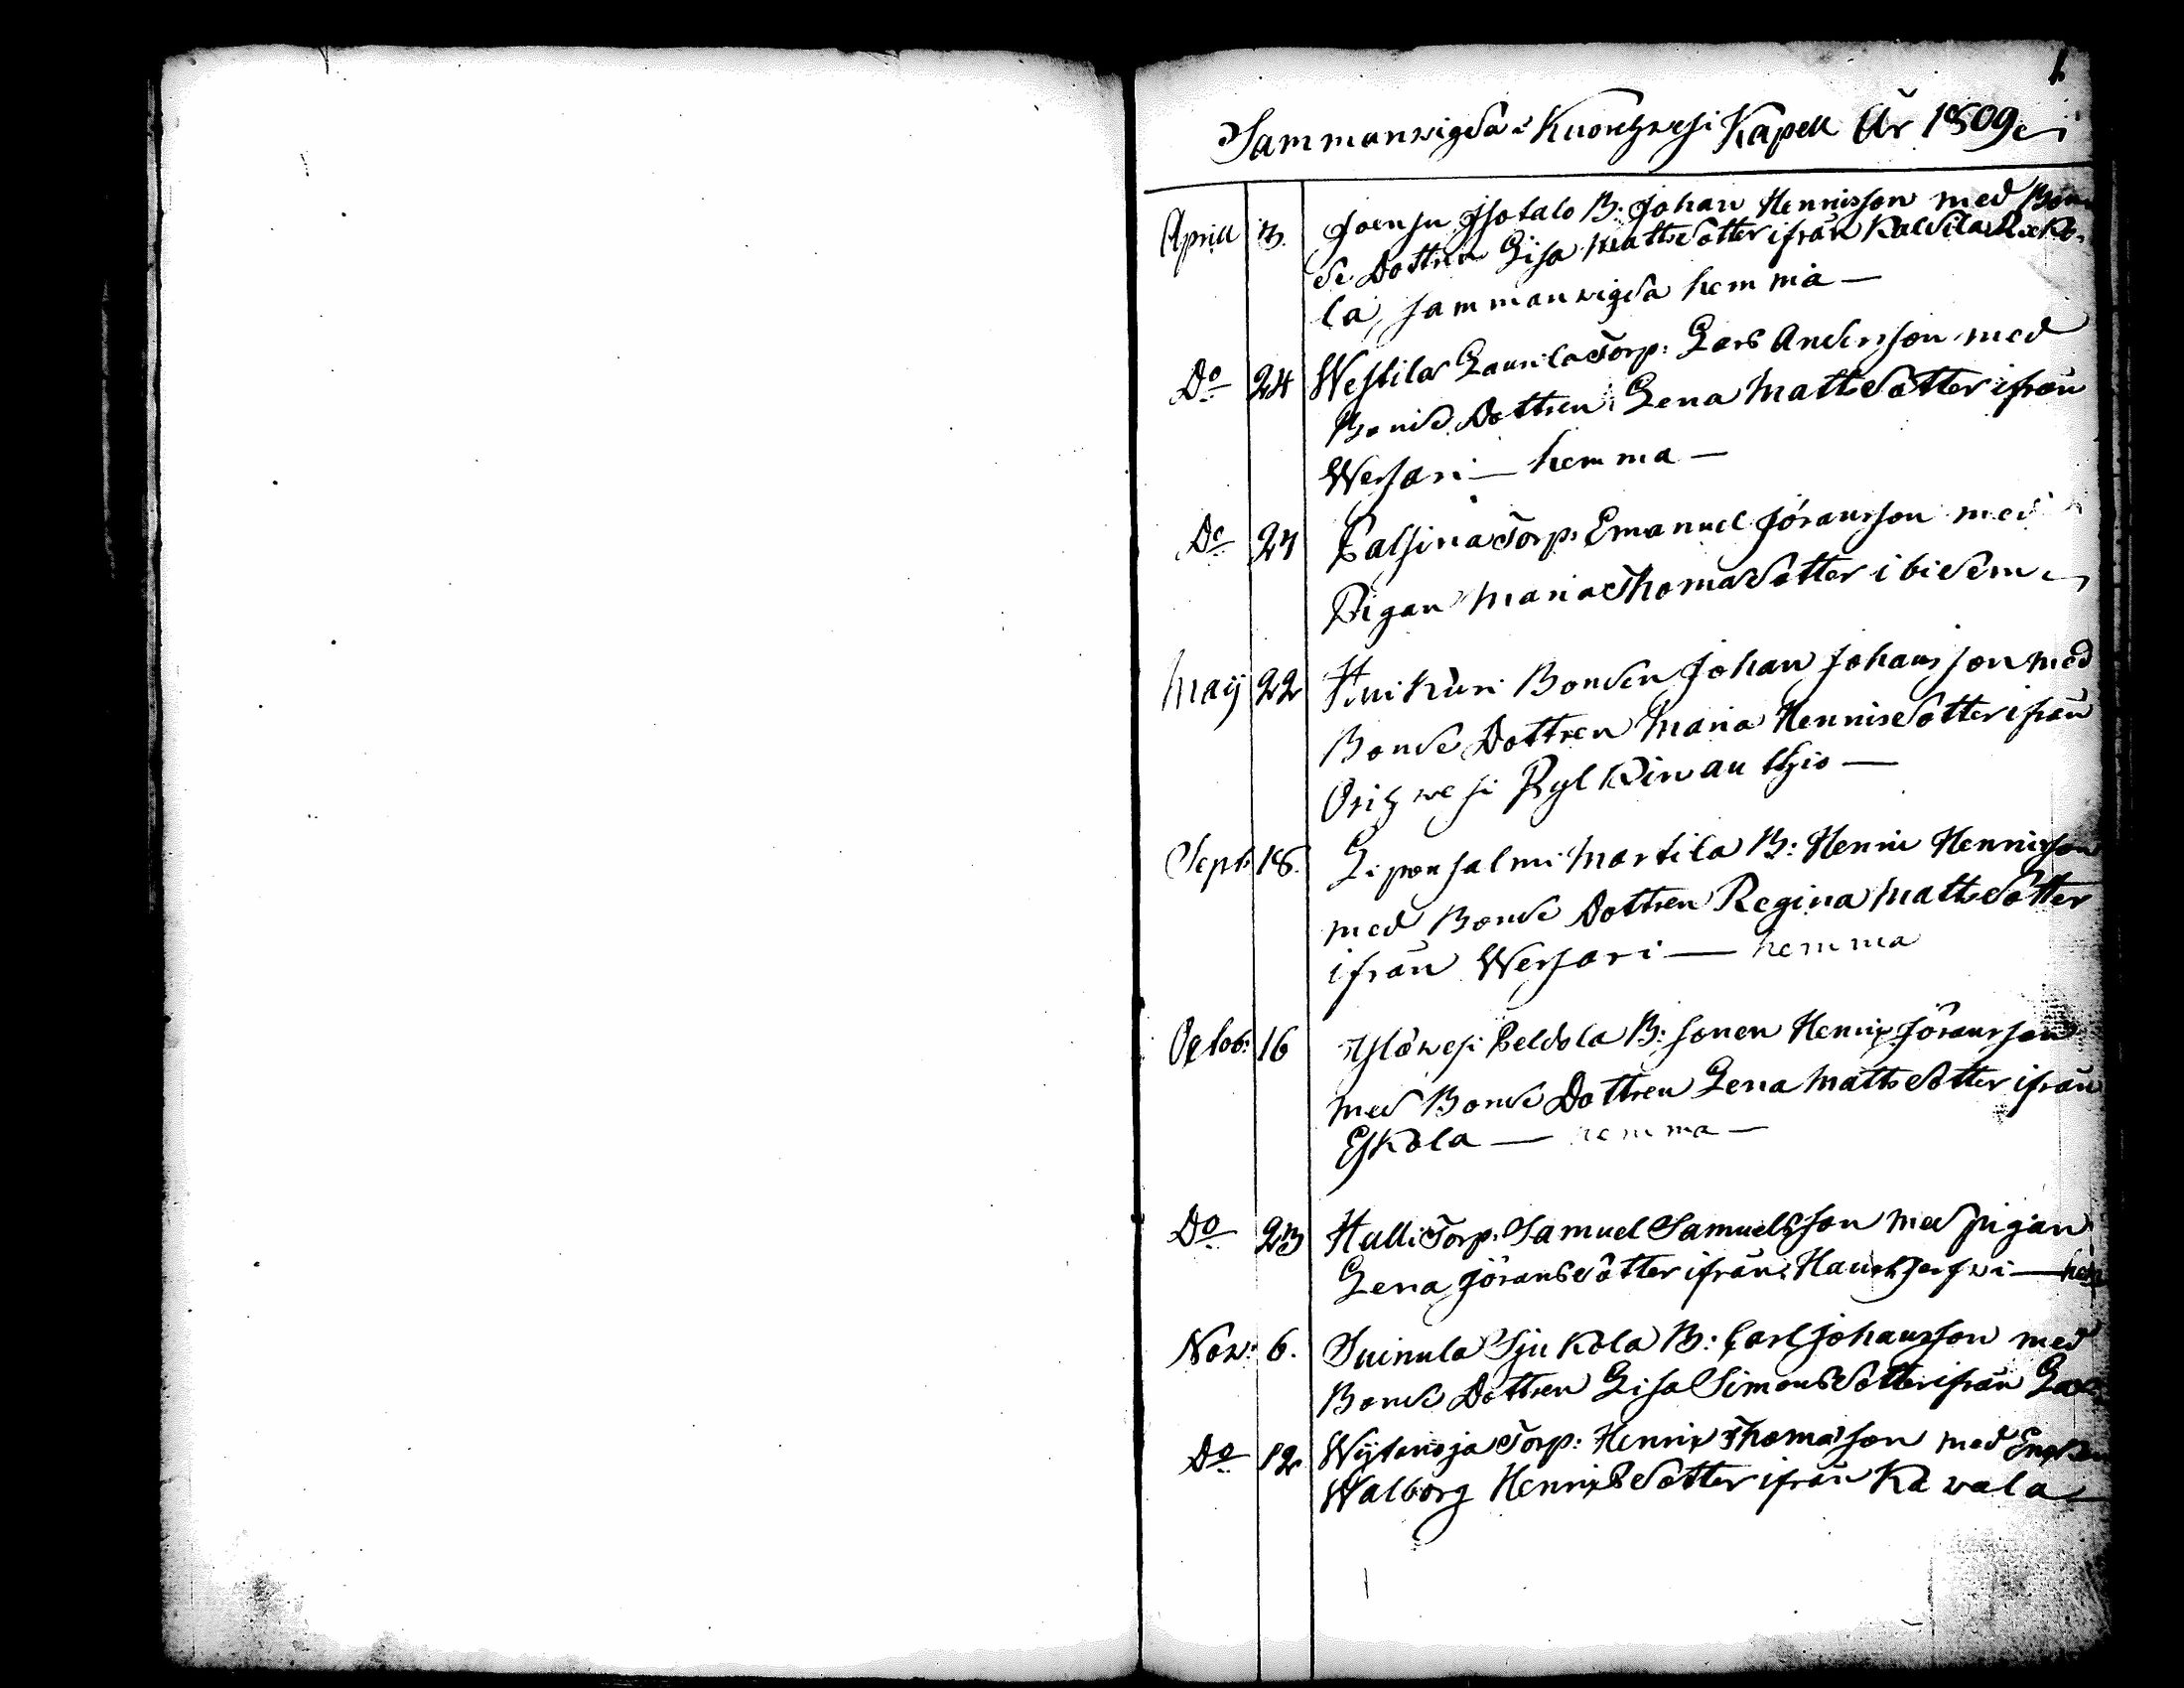 1.
Sammanwigda i Kuorehwesi Kapell År 1809
Aprill 3. Joensu Isotalo B: Johan Henricsson med Bon
de Dottren Lisa Mattsdotter ifrån Kaldila Reko
la, sammanwigda hemma —
Do 24 Westila Laurila Torp: Lars Andersson med
Bonde Dottren Lena Mattsdotter ifrån
Wessari — hemma —
Do 27 Palsina Torp: Emanuel Jöransson med
Pigan Maria Thomasdotter ibidem
Maij 22 Huikuri Bonden Johan Johansson med
Bonde Dottren Maria Henricsdotter ifrån
Orihwesi Pylkin autio —
Sept: 18. Liponsalmi Martila B: Henric Henricsson
med Bonde Dottren Regina Mattsdotter
ifrån Wessari — hemma
Octob: 16 Ylöwesi Peldola B: sonen Henrix Jöransson
med Bonde Dottren Lena Mattsdotter ifrån
Eskola — hemma —
Do 23 Halli Torp: Samuel Samuelsson med pigan
Lena Jöransdotter ifrån Haukjerfwi —
Nov: 6. Suinula Sjukola B: Carl Johansson med
Bonde Dottren Lisa Simonsdotter ifrån
Do 12 Torp: Henrix Thomasson med Enckan
Walborg Henrixdotter ifrån Kawala —